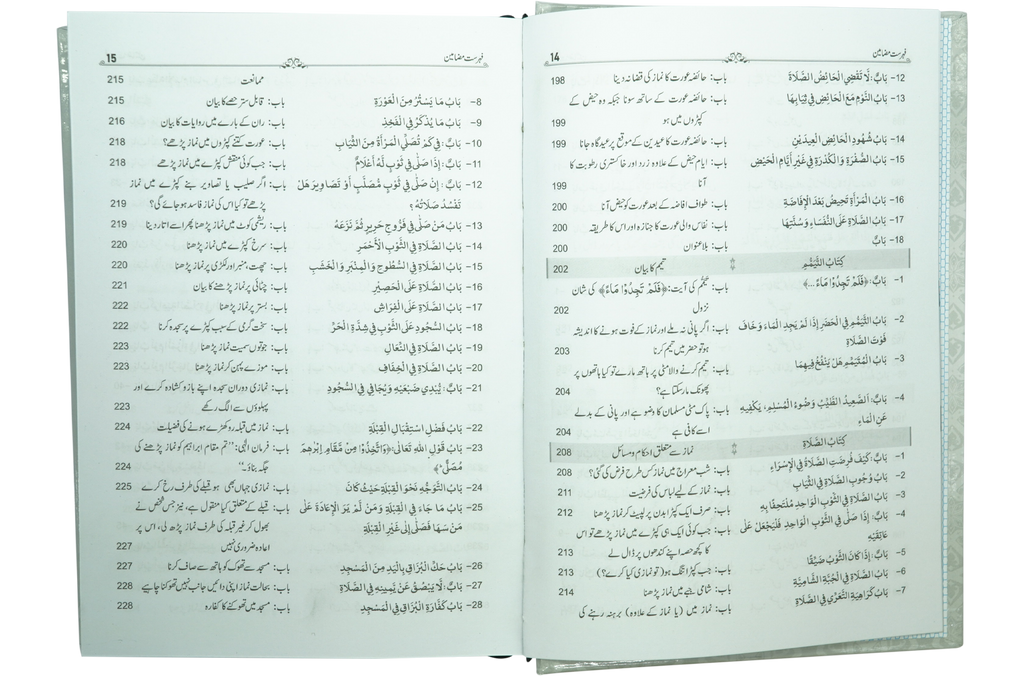 فہرست مضامین 14
12- بَابٌ: لَا تَقْضِي الْحَائِضُ الصَّلَاةَ باب: حائضہ عورت کا نماز کی قضا نہ دینا 198
13- بَابُ النَّوْمِ مَعَ الْحَائِضِ فِي ثِيَابِهَا باب: حائضہ عورت کے ساتھ سونا جبکہ وہ حیض کے
کپڑوں میں ہو 199
14- بَابُ شُهُودِ الْحَائِضِ الْعِيدَيْنِ باب: حائضہ عورت کا عیدین کے موقع پر عیدگاہ جانا 199
15- بَابُ الصُّفْرَةِ وَالْكُدْرَةِ فِي غَيْرِ أَيَّامِ الْحَيْضِ باب: ایام حیض کے علاوہ زرد اور خاکستری رطوبت کا
آنا 199
16- بَابُ الْمَرْأَةِ تَحِيضُ بَعْدَ الْإِفَاضَةِ باب: طواف افاضہ کے بعد عورت کو حیض آنا 200
17- بَابُ الصَّلَاةِ عَلَى النُّفَسَاءِ وَسُنَّتِهَا باب: نفاس والی عورت کا جنازہ اور اس کا طریقہ 200
18- بَابٌ باب: بلا عنوان 200
كِتَابُ التَّيَمُّمِ تیمم کا بیان 202
1- بَابٌ: ﴿فَلَمْ تَجِدُوا مَاءً ...﴾ باب: تیمم کی آیت: ﴿فَلَمْ تَجِدُوا مَاءً﴾ کی شان
نزول 202
2- بَابُ التَّيَمُّمِ فِي الْحَضَرِ إِذَا لَمْ يَجِدِ الْمَاءَ وَخَافَ باب: اگر پانی نہ ملے اور نماز کے فوت ہونے کا اندیشہ
فَوْتَ الصَّلَاةِ ہو تو حضر میں تیمم کرنا 203
3- بَابُ الْمُتَيَمِّمِ هَلْ يَنْفُخُ فِيهِمَا باب: تیمم کرنے والا مٹی پر ہاتھ مارے تو کیا ہاتھوں پر
پھونک مار سکتا ہے؟ 204
4- بَابٌ: الصَّعِيدُ الطَّيِّبُ وَضُوءُ الْمُسْلِمِ، يَكْفِيهِ باب: پاک مٹی مسلمان کا وضو ہے اور پانی کے بدلے
عَنِ الْمَاءِ اسے کافی ہے 204
كِتَابُ الصَّلَاةِ نماز سے متعلق احکام و مسائل 208
1- بَابٌ: كَيْفَ فُرِضَتِ الصَّلَاةُ فِي الْإِسْرَاءِ باب: شب معراج میں نماز کس طرح فرض کی گئی؟ 208
2- بَابُ وُجُوبِ الصَّلَاةِ فِي الثِّيَابِ باب: نماز کے لیے لباس کی فرضیت 211
3- بَابُ الصَّلَاةِ فِي الثَّوْبِ الْوَاحِدِ مُلْتَحِفًا بِهِ باب: صرف ایک کپڑا بدن پر لپیٹ کر نماز پڑھنا 212
4- بَابٌ: إِذَا صَلَّى فِي الثَّوْبِ الْوَاحِدِ فَلْيَجْعَلْ عَلَى باب: جب کوئی ایک ہی کپڑے میں نماز پڑھے تو اس
عَاتِقَيْهِ کا کچھ حصہ اپنے کندھوں پر ڈال لے 213
5- بَابٌ: إِذَا كَانَ الثَّوْبُ ضَيِّقًا باب: جب کپڑا تنگ ہو (تو نمازی کیا کرے؟) 213
6- بَابُ الصَّلَاةِ فِي الْجُبَّةِ الشَّامِيَّةِ باب: شامی جبے میں نماز پڑھنا 214
7- بَابُ كَرَاهِيَةِ التَّعَرِّي فِي الصَّلَاةِ باب: نماز میں (یا نماز کے علاوہ) برہنہ رہنے کی
فہرست مضامین 15
ممانعت 215
8- بَابُ مَا يَسْتُرُ مِنَ الْعَوْرَةِ باب: قابل ستر حصے کا بیان 215
9- بَابُ مَا يُذْكَرُ فِي الْفَخِذِ باب: ران کے بارے میں روایات کا بیان 216
10- بَابٌ: فِي كَمْ تُصَلِّي الْمَرْأَةُ مِنَ الثِّيَابِ باب: عورت کتنے کپڑوں میں نماز پڑھے؟ 218
11- بَابٌ: إِذَا صَلَّى فِي ثَوْبٍ لَهُ أَعْلَامٌ باب: جب کوئی منقش کپڑے میں نماز پڑھے 218
12- بَابٌ: إِنْ صَلَّى فِي ثَوْبٍ مُصَلَّبٍ أَوْ تَصَاوِيرَ هَلْ باب: اگر صلیب یا تصاویر بنے کپڑے میں نماز
تَفْسُدُ صَلَاتُهُ؟ پڑھے تو کیا اس کی نماز فاسد ہو جائے گی؟ 219
13- بَابُ مَنْ صَلَّى فِي فَرُّوجِ حَرِيرٍ ثُمَّ نَزَعَهُ باب: ریشمی کوٹ میں نماز پڑھنا پھر اسے اتار دینا 219
14- بَابُ الصَّلَاةِ فِي الثَّوْبِ الْأَحْمَرِ باب: سرخ کپڑے میں نماز پڑھنا 220
15- بَابُ الصَّلَاةِ فِي السُّطُوحِ وَالْمِنْبَرِ وَالْخَشَبِ باب: چھت، منبر اور لکڑی پر نماز پڑھنا 220
16- بَابُ الصَّلَاةِ عَلَى الْحَصِيرِ باب: چٹائی پر نماز پڑھنے کا بیان 221
17- بَابُ الصَّلَاةِ عَلَى الْفِرَاشِ باب: بستر پر نماز پڑھنا 222
18- بَابُ السُّجُودِ عَلَى الثَّوْبِ فِي شِدَّةِ الْحَرِّ باب: سخت گرمی کے سبب کپڑے پر سجدہ کرنا 222
19- بَابُ الصَّلَاةِ فِي النِّعَالِ باب: جوتوں سمیت نماز پڑھنا 223
20- بَابُ الصَّلَاةِ فِي الْخِفَافِ باب: موزے پہن کر نماز پڑھنا 223
21- بَابٌ: يُبْدِي ضَبْعَيْهِ وَيُجَافِي فِي السُّجُودِ باب: نمازی دوران سجدہ اپنے بازو کشادہ کرے اور
پہلوؤں سے الگ رکھے 223
22- بَابُ فَضْلِ اسْتِقْبَالِ الْقِبْلَةِ باب: نماز میں قبلہ رو کھڑے ہونے کی فضیلت 224
23- بَابُ قَوْلِ اللهِ تَعَالَى: ﴿وَاتَّخِذُوا مِنْ مَّقَامِ إِبْرٰهِمَ باب: فرمان الٰہی: ”تم مقام ابراہیم کو نماز پڑھنے کی
مُصَلًّى﴾ جگہ بناؤ۔“ 224
24- بَابُ التَّوَجُّهِ نَحْوَ الْقِبْلَةِ حَيْثُ كَانَ باب: نمازی جہاں بھی ہو قبلے کی طرف رخ کرے 225
25- بَابُ مَا جَاءَ فِي الْقِبْلَةِ وَمَنْ لَمْ يَرَ الْإِعَادَةَ عَلَى باب: قبلے کے متعلق کیا منقول ہے، نیز جس شخص نے
مَنْ سَهَا فَصَلَّى إِلَى غَيْرِ الْقِبْلَةِ بھول کر غیر قبلہ کی طرف نماز پڑھ لی، اس پر
اعادہ ضروری نہیں 227
26- بَابُ حَكِّ الْبُزَاقِ بِالْيَدِ مِنَ الْمَسْجِدِ باب: مسجد سے تھوک کو ہاتھ سے صاف کرنا 227
27- بَابٌ: لَا يَبْصُقُ عَنْ يَمِينِهِ فِي الصَّلَاةِ باب: بحالت نماز اپنی دائیں جانب نہیں تھوکنا چاہیے 228
28- بَابُ كَفَّارَةِ الْبُزَاقِ فِي الْمَسْجِدِ باب: مسجد میں تھوکنے کا کفارہ 228